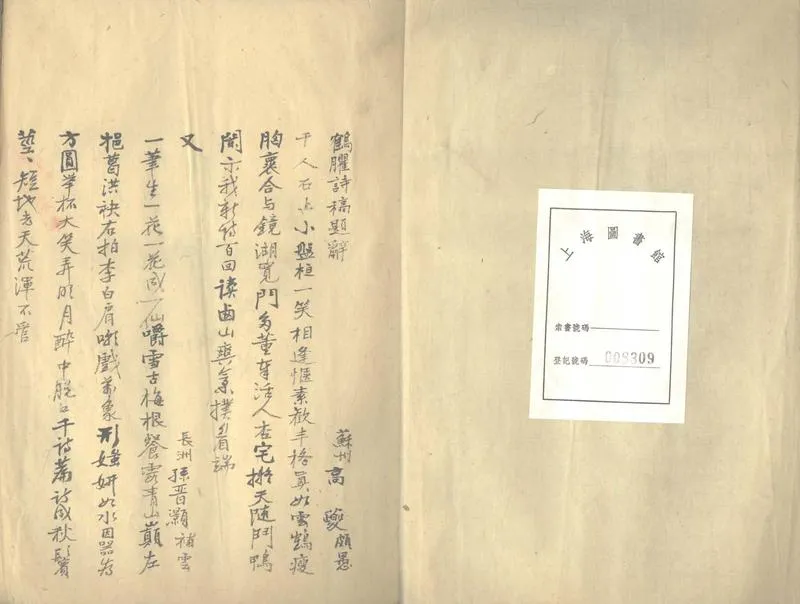 鶴臞詩稿題辭
蘇州高夔頗愚
千人石上小盤桓一笑相逢愜素歡丰格真如雲鶴瘦
胸襟合与鏡湖寬門多董奉活人杏宅擬天随鬥鴨
闌示我新詩百回读鹵山爽氣撲眉端
又 長洲孫晋灝補雲
一筆生一花一花成一仙嚼雪古梅根餐露青山巔左
挹葛洪袂右拍李白肩嘲戲萬象形媸妍如水因器為
方圓举杯大笑弄明月醉中脫口千詩篇詩成秋鬢
短地老天荒渾不管
圖書館
索書號碼
登記號碼 008309